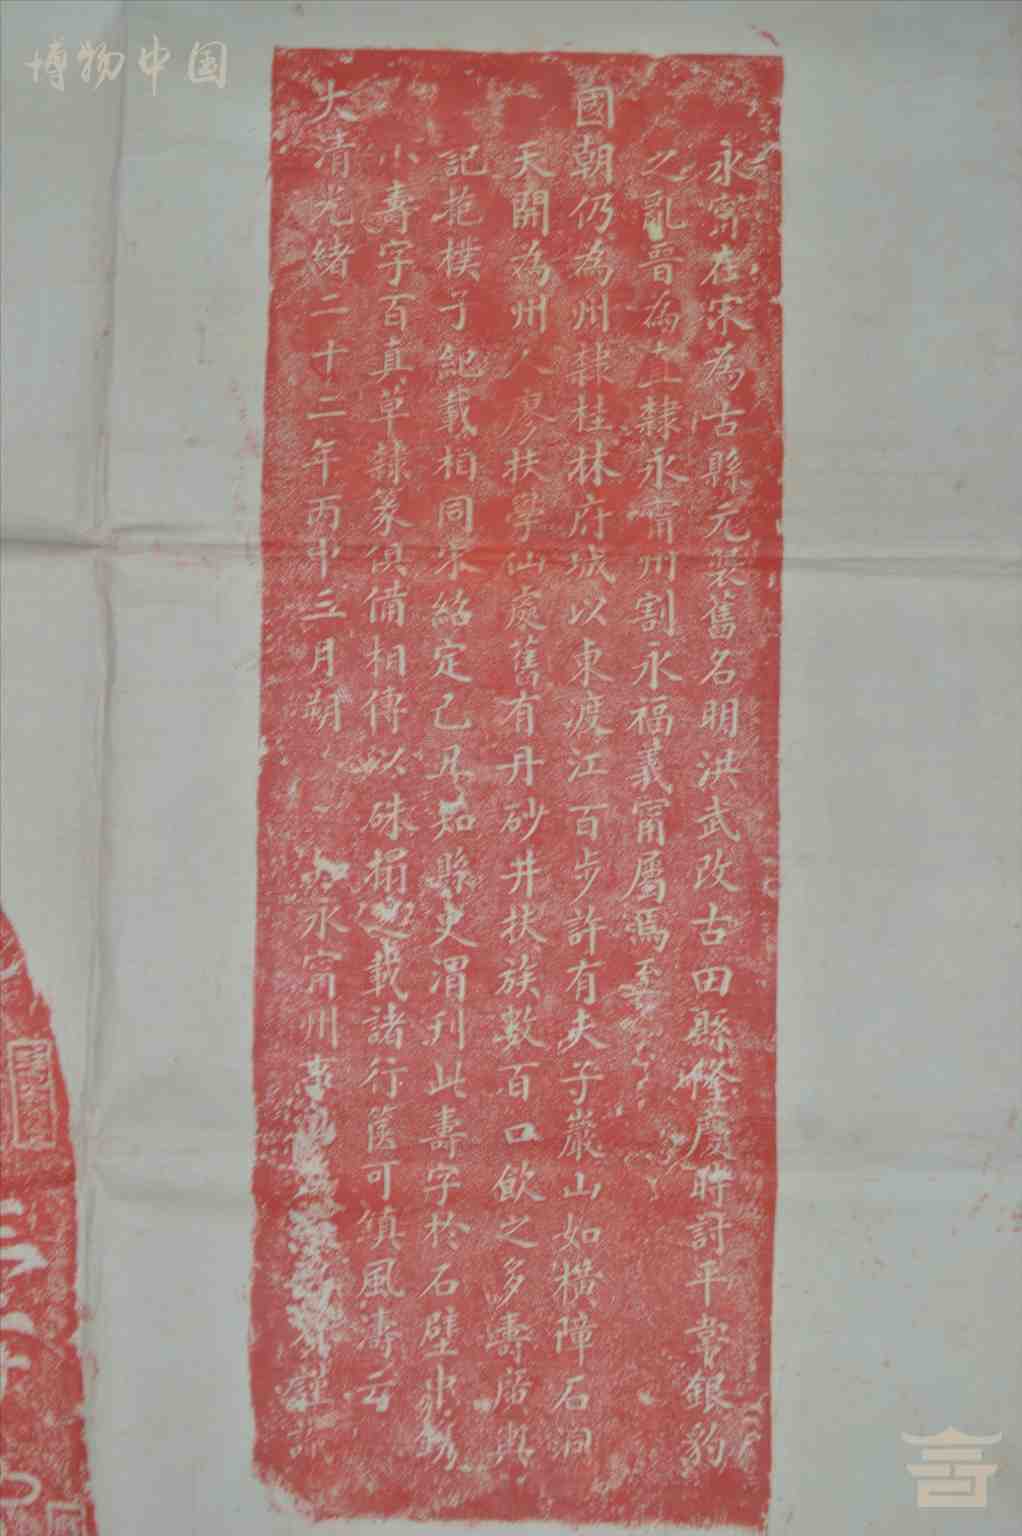 博物中国
永寧在宋為古縣元襲舊名明洪武改古田縣隆慶時討平韋銀豹
之亂晉為土隸永甯州割永福義甯屬焉至
國朝仍為州隸桂林府城以東渡江百步許有夫子巖山如橫障石洞
天開為州人廖扶學仙處舊有丹砂井扶族數百口飲之多壽居與
記抱樸子紀載相同宋紹定己丑知縣史渭刊此壽字於石壁中
小壽字百真草隸篆俱備相傳以硃搨之載諸行篋可鎮風濤云
大清光緒二十二年丙申三月朔 永甯州事